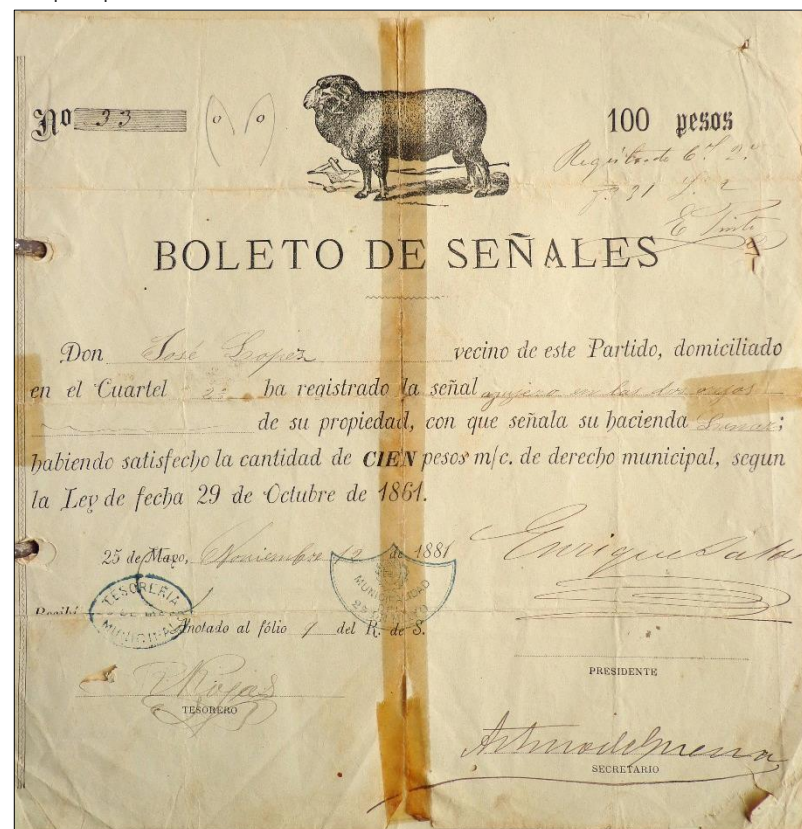 No 33
100 pesos
Registrado C.l 2.o
E. Pinto
BOLETO DE SEÑALES
Don José Lopez vecino de este Partido, domiciliado
en el Cuartel 2o ha registrado la señal agujero en las dos orejas
de su propiedad, con que señala su hacienda Lanar;
habiendo satisfecho la cantidad de CIEN pesos m/c. de derecho municipal, segun
la Ley de fecha 29 de Octubre de 1861.
25 de Mayo, Noviembre 12 de 1881
TESORERIA
MUNICIPAL
MUNICIPALIDAD
25 DE MAYO
Recibí
Anotado al fólio 9 del R. de S.
Enrique
PRESIDENTE
Rojas
TESORERO
Arturo
SECRETARIO